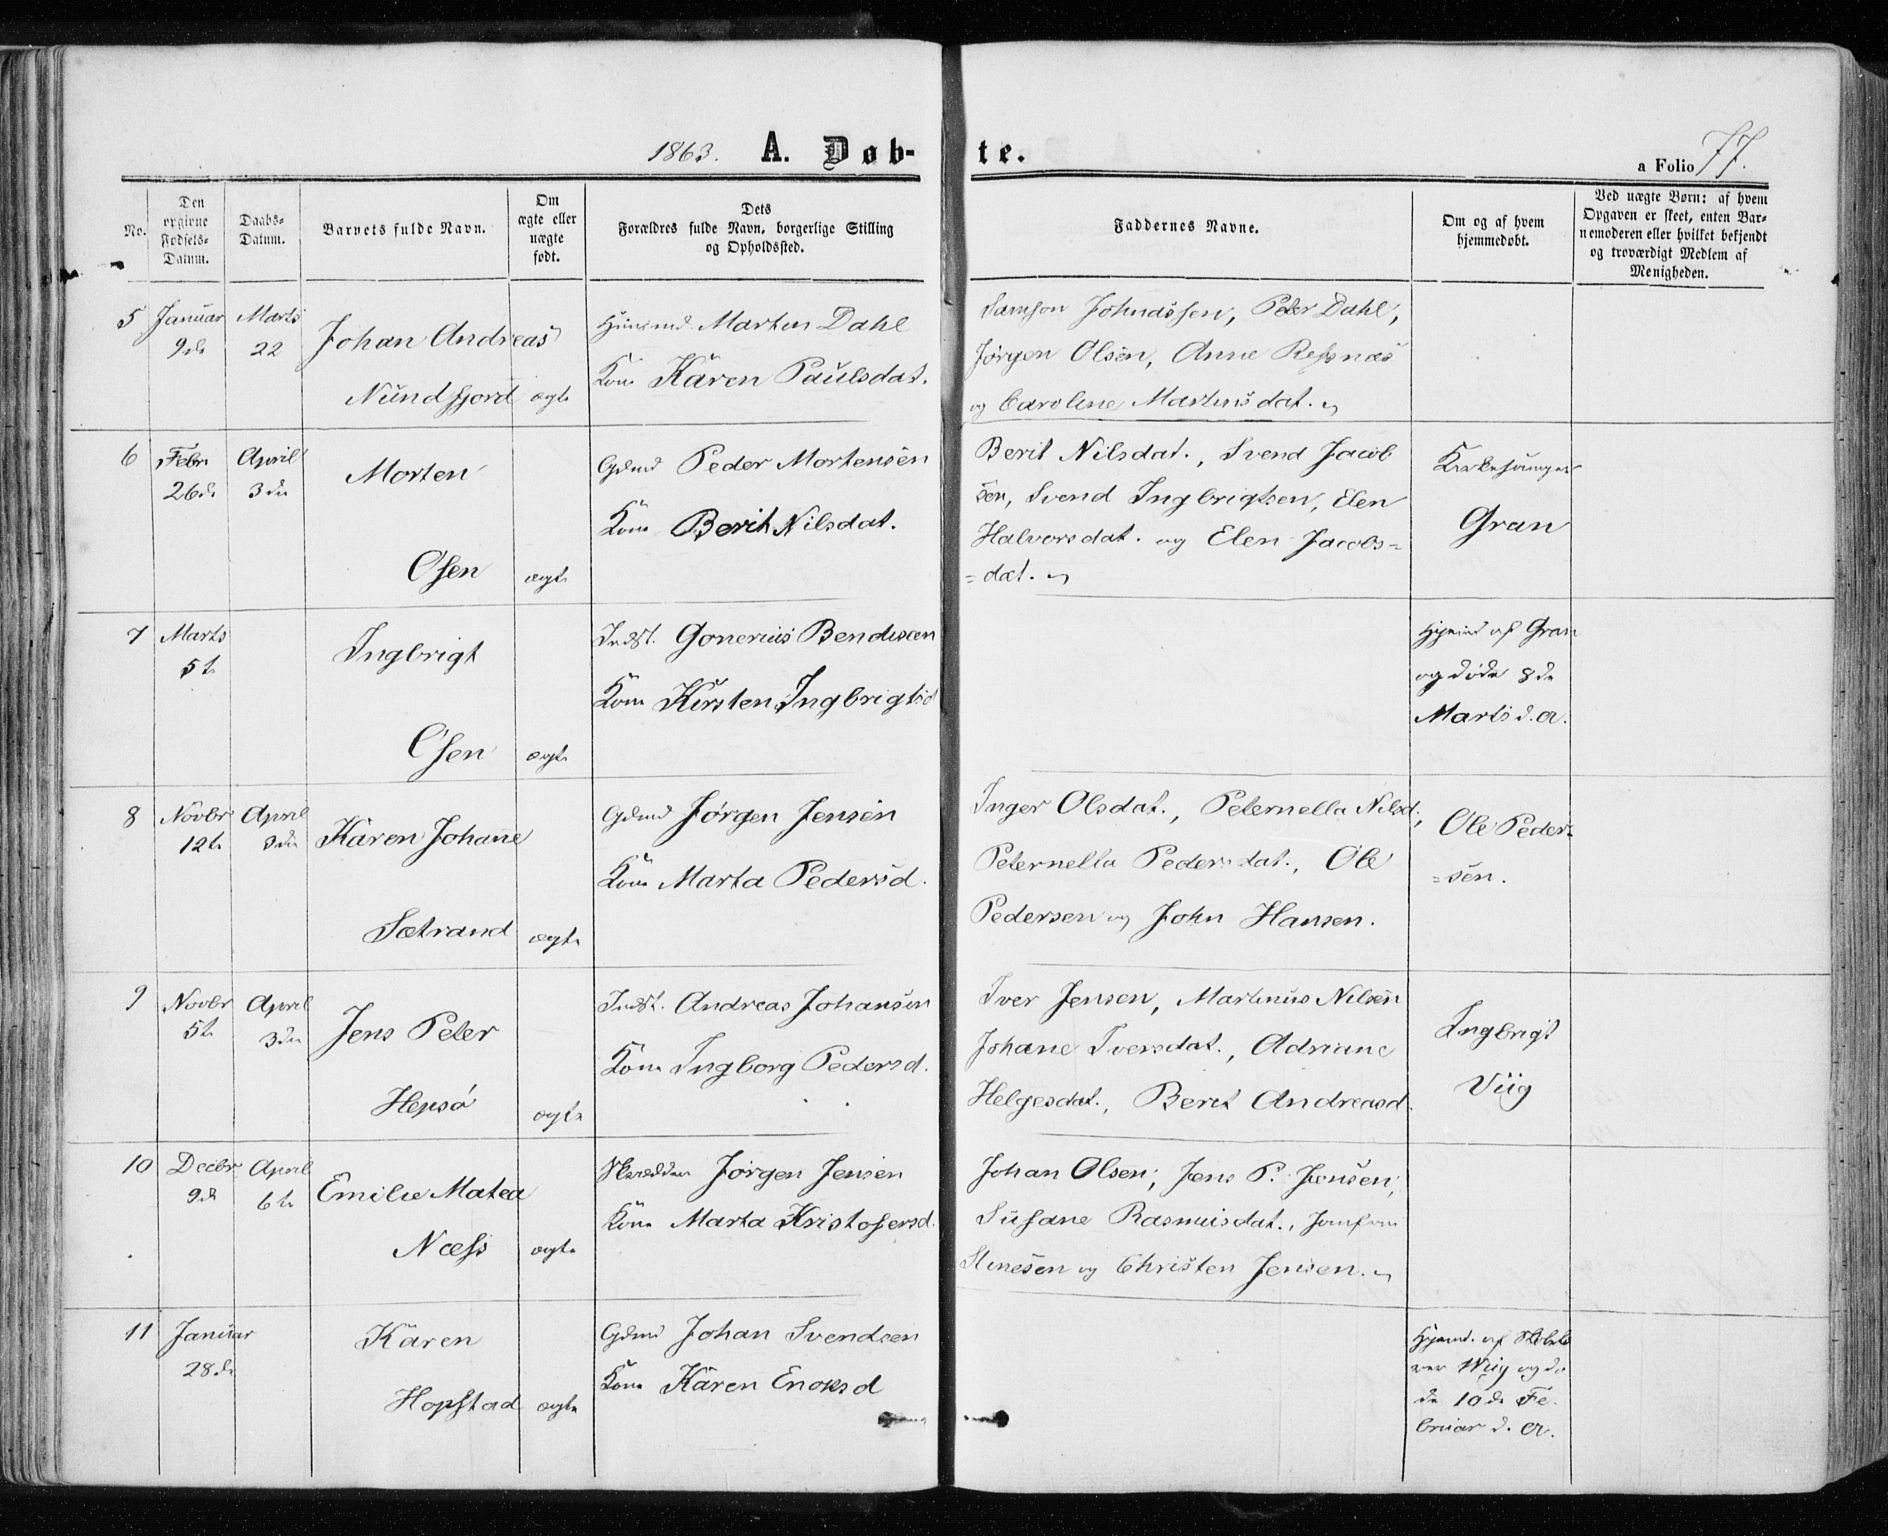 1863. A. Døb-te.
a Folio 77.
No.
Den opgivne Fødsels-Datum.
Daabs-Datum.
Barnets fulde Navn.
Om ægte eller uægte født.
Dets Forældres fulde Navn, borgerlige Stilling og Opholdssted.
Faddernes Navne.
Om og af hvem hjemmedøbt.
Ved uægte Børn: af hvem Opgaven er skeet, enten Barnemoderen eller hvilket bekjendt og troværdigt Medlem af Menigheden.
5 Januar 9de Marts 22 Johan Andreas
Nundfjord ægte
Martin Dahl
Kone Karen Paulsdat.
Samson Johnassen, Peter Dahl,
Jørgen Olsen, Anne Refsnæs
og Caroline Martinsdat.
6 Febr 26de April 3die Morten
Osen ægte
Gdmd Peder Mortensen
Kone Berit Nilsdat.
Berit Nilsdat., Svend Jacob
sen, Svend Ingbrigtsen, Elen
Halvorsdat. og Elen Jacobs=
=dat.
Kirkesanger
Gran
7 Marts 5te Ingbrigt
Osen ægte
Indst. Gonerius Bendixen
Kone Kirsten Ingbrigtsd
Hjemd af Gran
og døde 8de
Marts d. A.
8 Novbr 12te April 3die Karen Johane
Sætrand ægte
Gdmd Jørgen Jensen
Kone Marta Pedersd.
Inger Olsdat., Peternella Nilsd.,
Peternella Pedersdat., Ole
Pedersen og John Hansen.
Ole Peder=
=sen.
9 Novbr 5te April 3die Jens Peter
Hepsø ægte
Indst. Andreas Johansen
Kone Ingborg Pedersd.
Iver Jensen, Martinus Nilsen
Johane Iversdat., Adriane
Helgesdat., Berit Andreasd.
Ingbrigt
Viig
10 Decbr 9de April 6te Emilie Matea
Næss ægte
Skrædder Jørgen Jensen
Kone Marta Kristofersd.
Johan Olsen, Jens P. Jensen,
Susane Rasmusdat.,
Stenesen og Christen Jensen.
11 Januar 28de Karen
Hopstad ægte
Gdmd Johan Svendsen
Kone Karen Enoksd
Hjemd. af Skolelæ
rer Wiig og dø
de 10de Fe
bruar d. A.